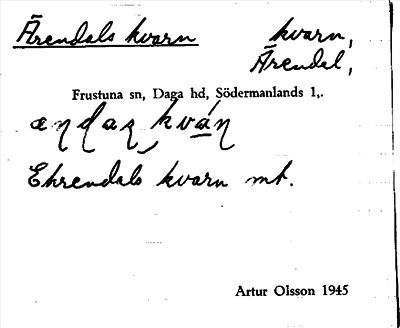 Ärendals kvarn kvarn,
Ärendal,
Frustuna sn, Daga hd, Södermanlands l,.
Ehrendals kvarn mt.
Artur Olsson 1945